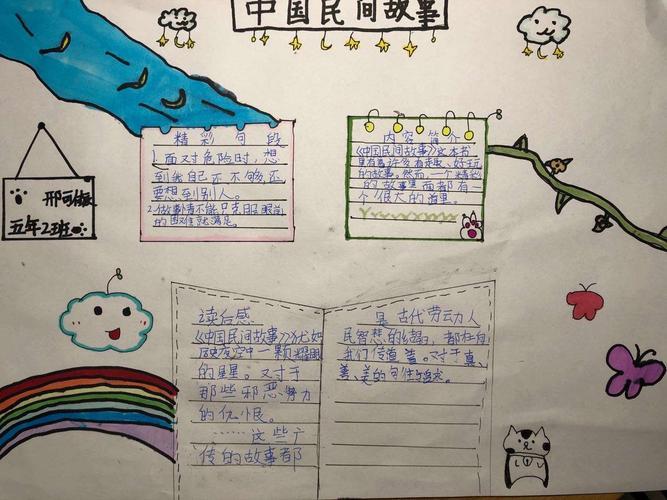 中国民间故事
精彩句段
1.面对危险时,想
到我自己还不够,还
要想到别人。
2.做事情不能只克服眼前
的困难就满足。
内容简介
《中国民间故事》这本书
里有着许多有趣、好玩
的故事。然而一个精彩
的故事里面都有一
个很大的道里。
邢可
五年2班
读后感
《中国民间故事》犹如
夜空中一颗耀眼
的星星。对于
那些邪恶势力
的仇恨。
……这些广
传的故事都
是古代劳动人
民智慧的结,都在向
我们传道善。对于真、
善、美的向往与追求。